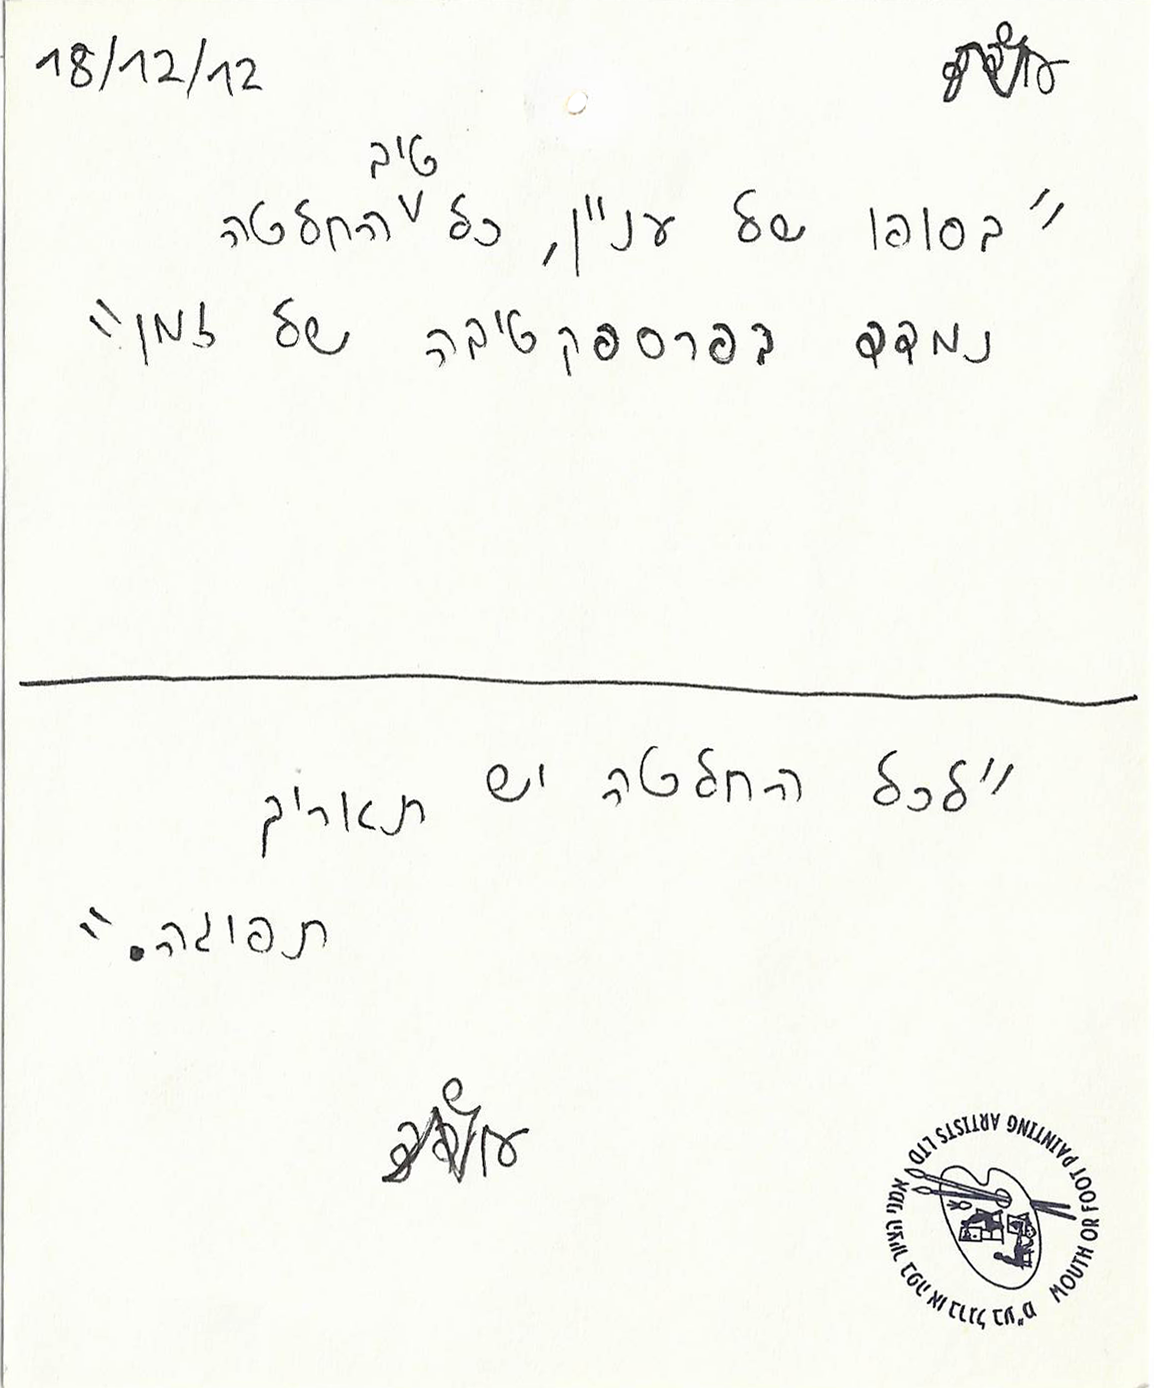 18/12/12
טיב
"בסופו של עניין, כל החלטה
נמדד בפרספקטיבה של זמן"
"לכל החלטה יש תאריך
תפוגה."
MOUTH OR FOOT PAINTING ARTISTS LTD
אמני הציור בפה או ברגל בע"מ